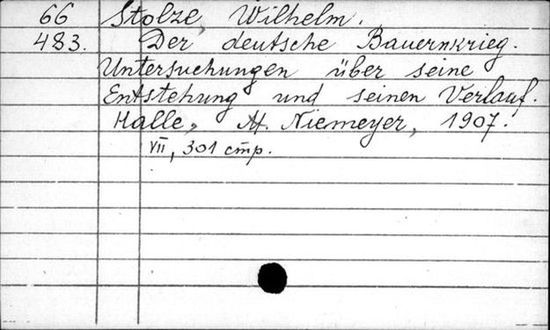 66 Stolze, Wilhelm.
483. Der deutsche Bauernkrieg.
Untersuchungen über seine
Entstehung und seinen Verlauf.
Halle, M. Niemeyer, 1907.
VII, 301 стр.